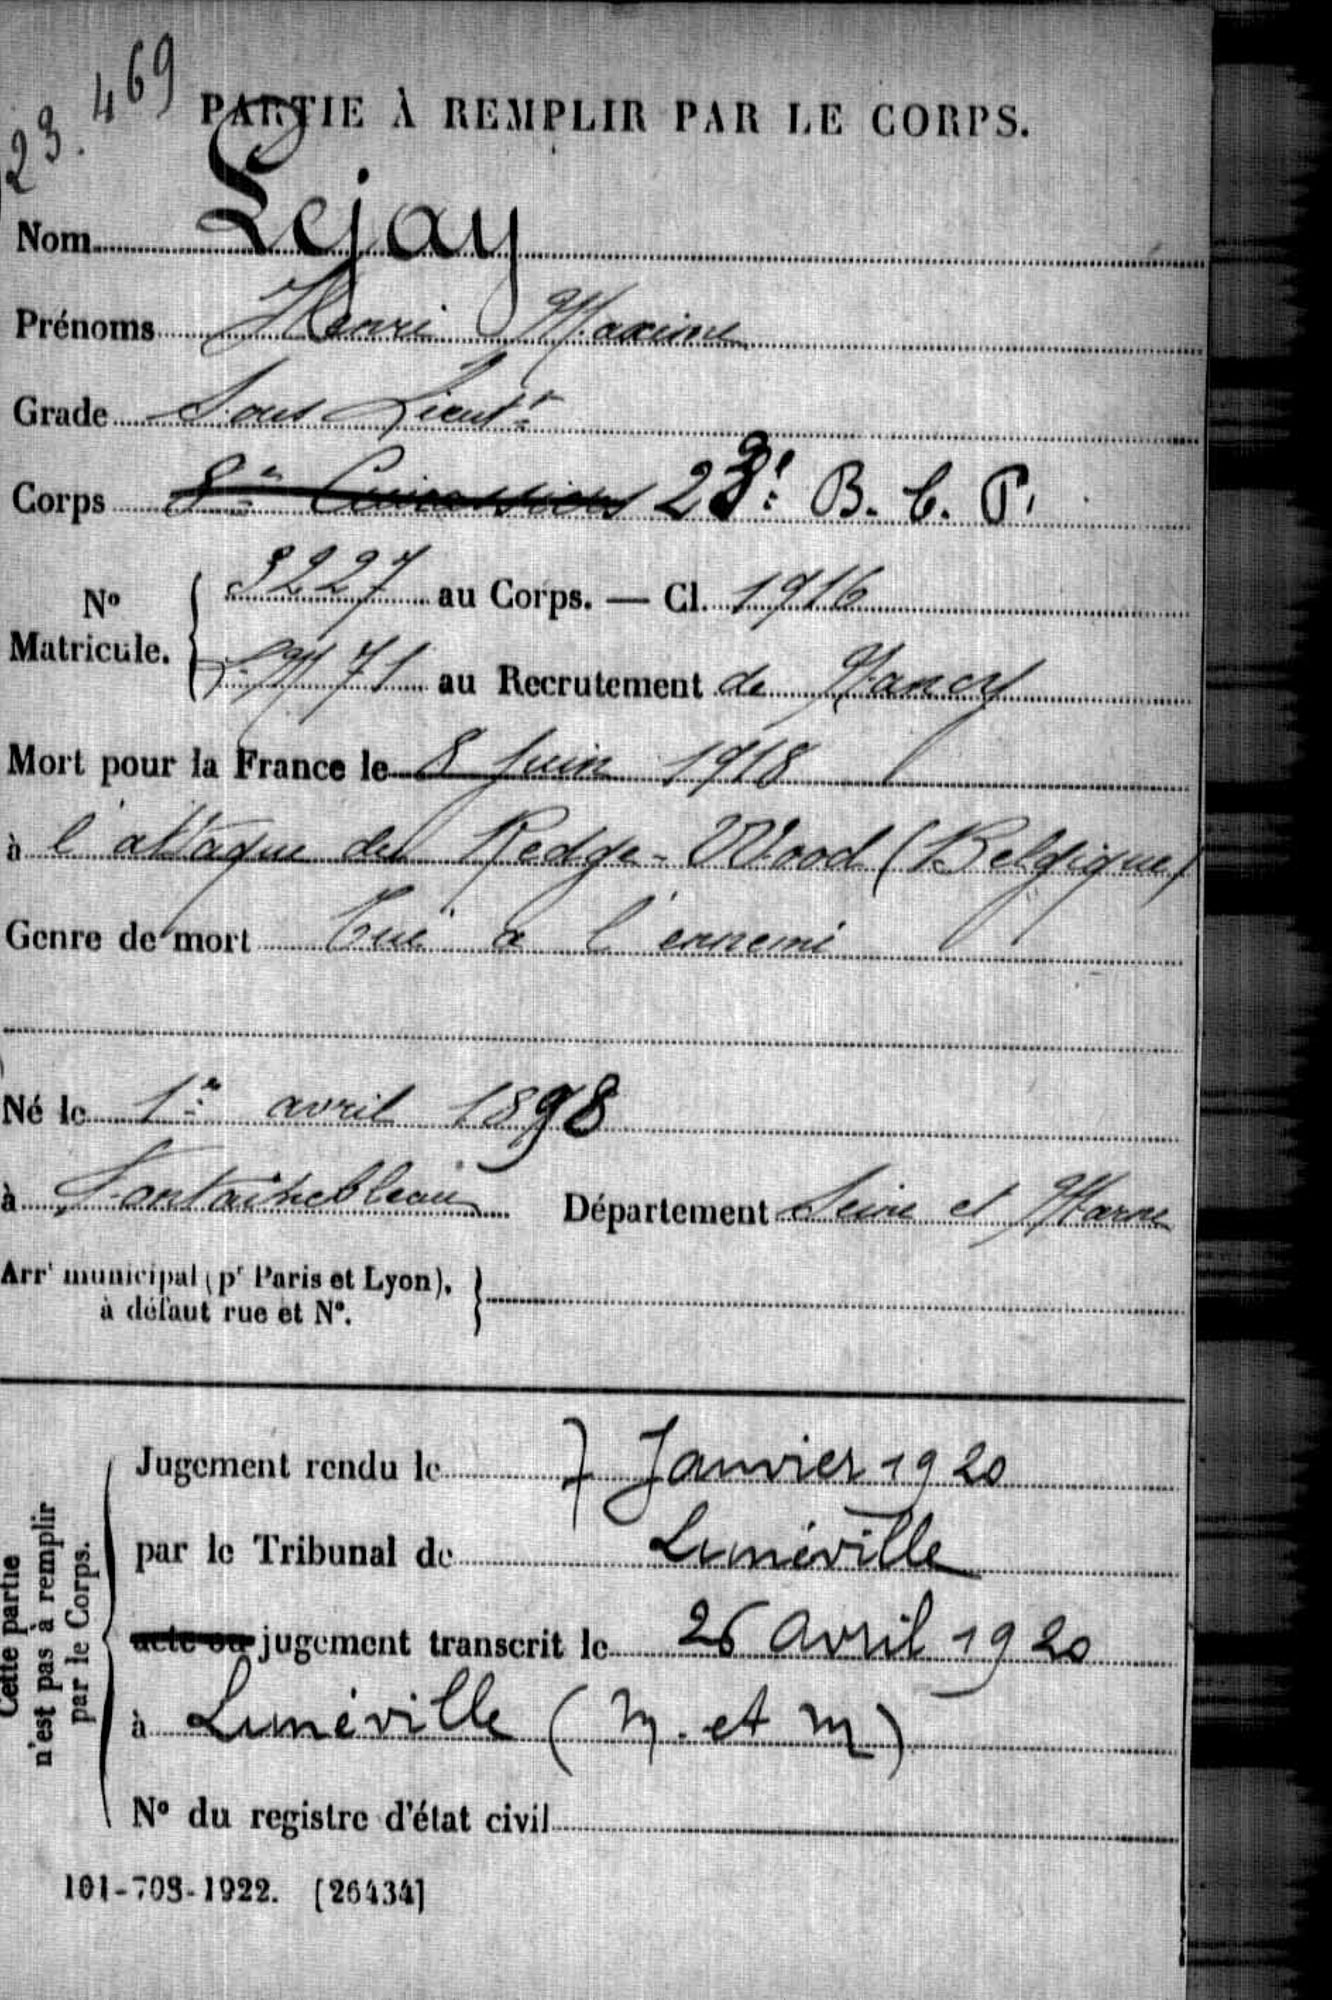 23.469
PARTIE À REMPLIR PAR LE CORPS.
Nom Lejay
Prénoms Henri Maxime
Grade Sous Lieutt
Corps 8e Cuirassiers 23e B. C. P.
No Matricule. 3227 au Corps. — Cl. 1916
71 au Recrutement de Nancy
Mort pour la France le 8 Juin 1918
à l'attaque de Redge-Wood (Belgique)
Genre de mort Tué à l'ennemi
Né le 1er avril 1898
à Fontainebleau Département Seine et Marne
Arrt municipal (pr Paris et Lyon),
à défaut rue et No.
Cette partie
n'est pas à remplir
par le Corps.
Jugement rendu le 7 Janvier 1920
par le Tribunal de Lunéville
acte ou jugement transcrit le 26 avril 1920
à Lunéville (M. et M)
No du registre d'état civil
101-708-1922. [26434]